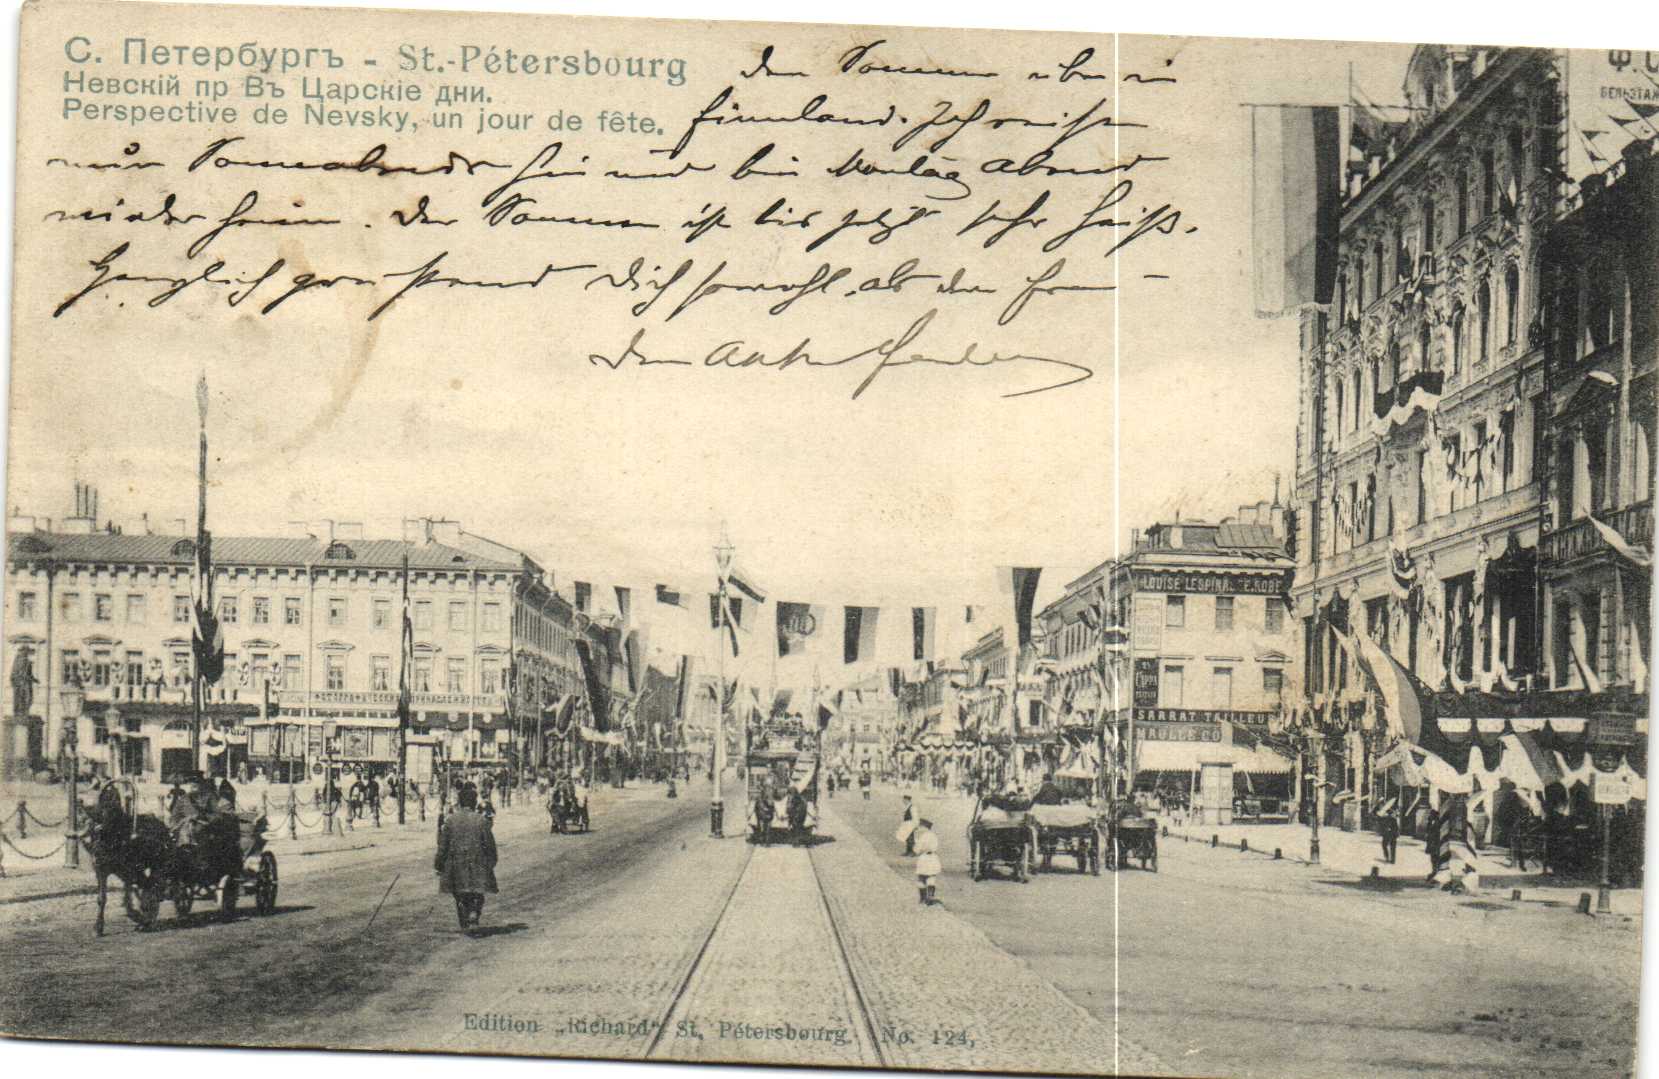 С. Петербургъ - St.-Pétersbourg
Невскій пр Въ Царскіе дни.
Perspective de Nevsky, un jour de fête.
den Sommer über in
Finnland. Ich reise
nur Sonnabends hin und bin Montag Abend
wieder heim. Der Sommer ist bis jetzt sehr heiß.
Herzlich grüssend Dich sowohl, als den
LOUISE
SARRAT TAILLEUR
MAULLE Co
Ф. С
БЕЛЬЭТАЖ
Edition „Richard“ St. Pétersbourg. No. 124,